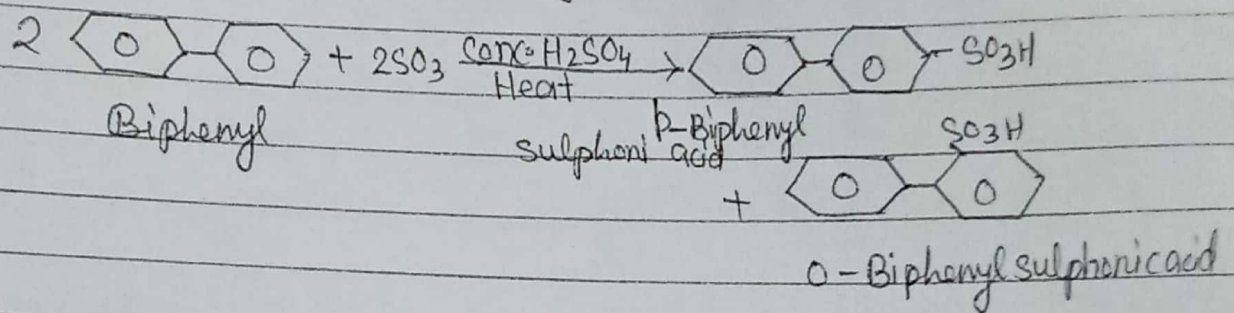 2 + 2SO3 Conc. H2SO4 SO3H
Heat
Biphenyl p-Biphenyl
sulphoni acid
SO3H
+
O-Biphenyl sulphonic acid